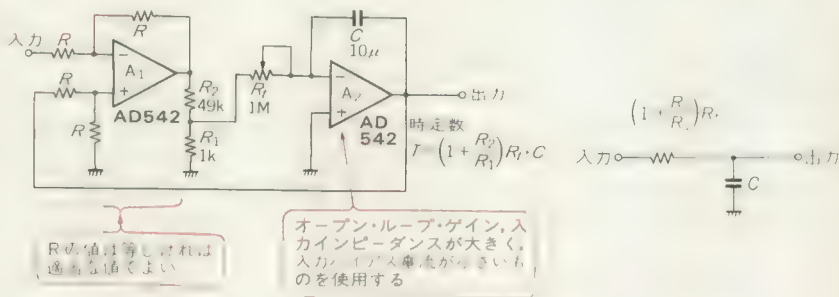 入力
R
R
R
R
A₁
AD542
R₂
49k
R₁
1k
Rₜ
1M
C
10μ
A₂
AD
542
出力
時定数
T (1+R₂/R₁)Rₜ・C
Rの値は等しければ
適当な値でよい
オープン・ループ・ゲイン,入
カインピーダンスが大きく,
入力バイアス電流が小さいも
のを使用する
入力
C
出力